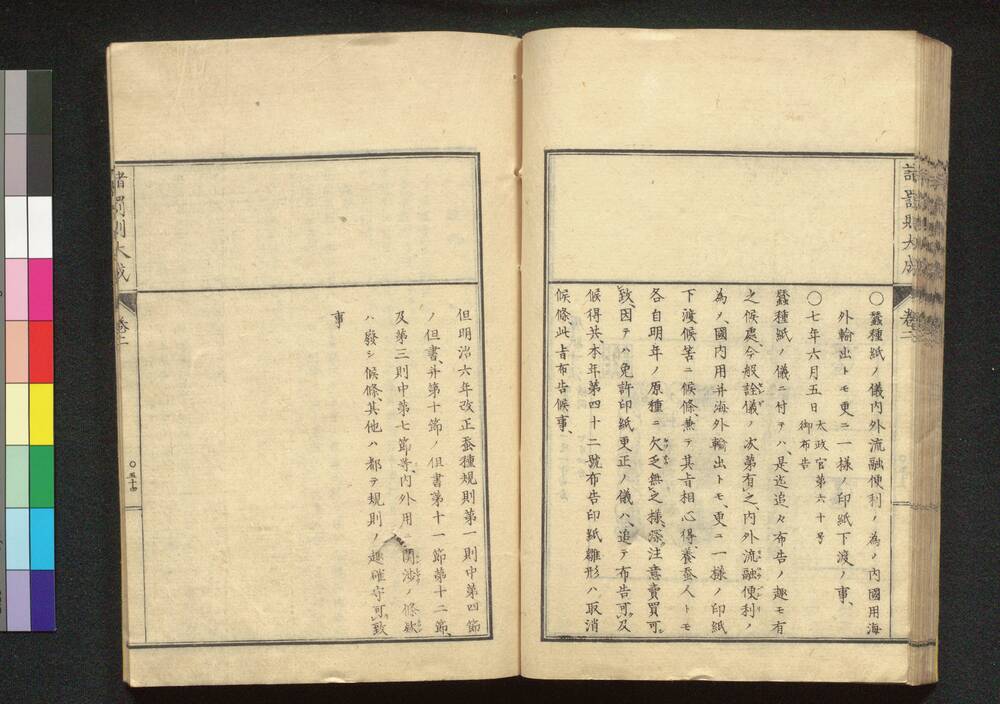 諸罰則大成
卷二
〇蠶種紙ノ儀內外流融便利ノ為メ內國用海
外輸出トモ更ニ一樣ノ印紙下渡ノ事、
〇七年六月五日 太政官第六十号
御布告
蠶種紙ノ儀ニ付テハ、是迄追々布告ノ趣モ有
之候處、今般詮儀ノ次第有之、內外流融便利ノ
為メ、國內用并海外輸出トモ、更ニ一樣ノ印紙
下渡候筈ニ候條、兼テ其旨相心得、養蚕人トモ
各自明年ノ原種ニ欠乏無之樣、深注意賣買可
致、因テハ免許印紙更正ノ儀ハ、追テ布告可及
候得共、本年第四十二號布告印紙雛形ハ取消
候條此旨布告候事、
但明治六年改正蚕種規則第一則中第四節
ノ但書、并第十節ノ但書第十一節第十二節、
及第三則中第七節等、內外用ニ関涉ノ條款
ハ廢シ候條、其他ハ都テ規則ノ趣確守可致
事
諸罰則大成
卷二
〇五十四